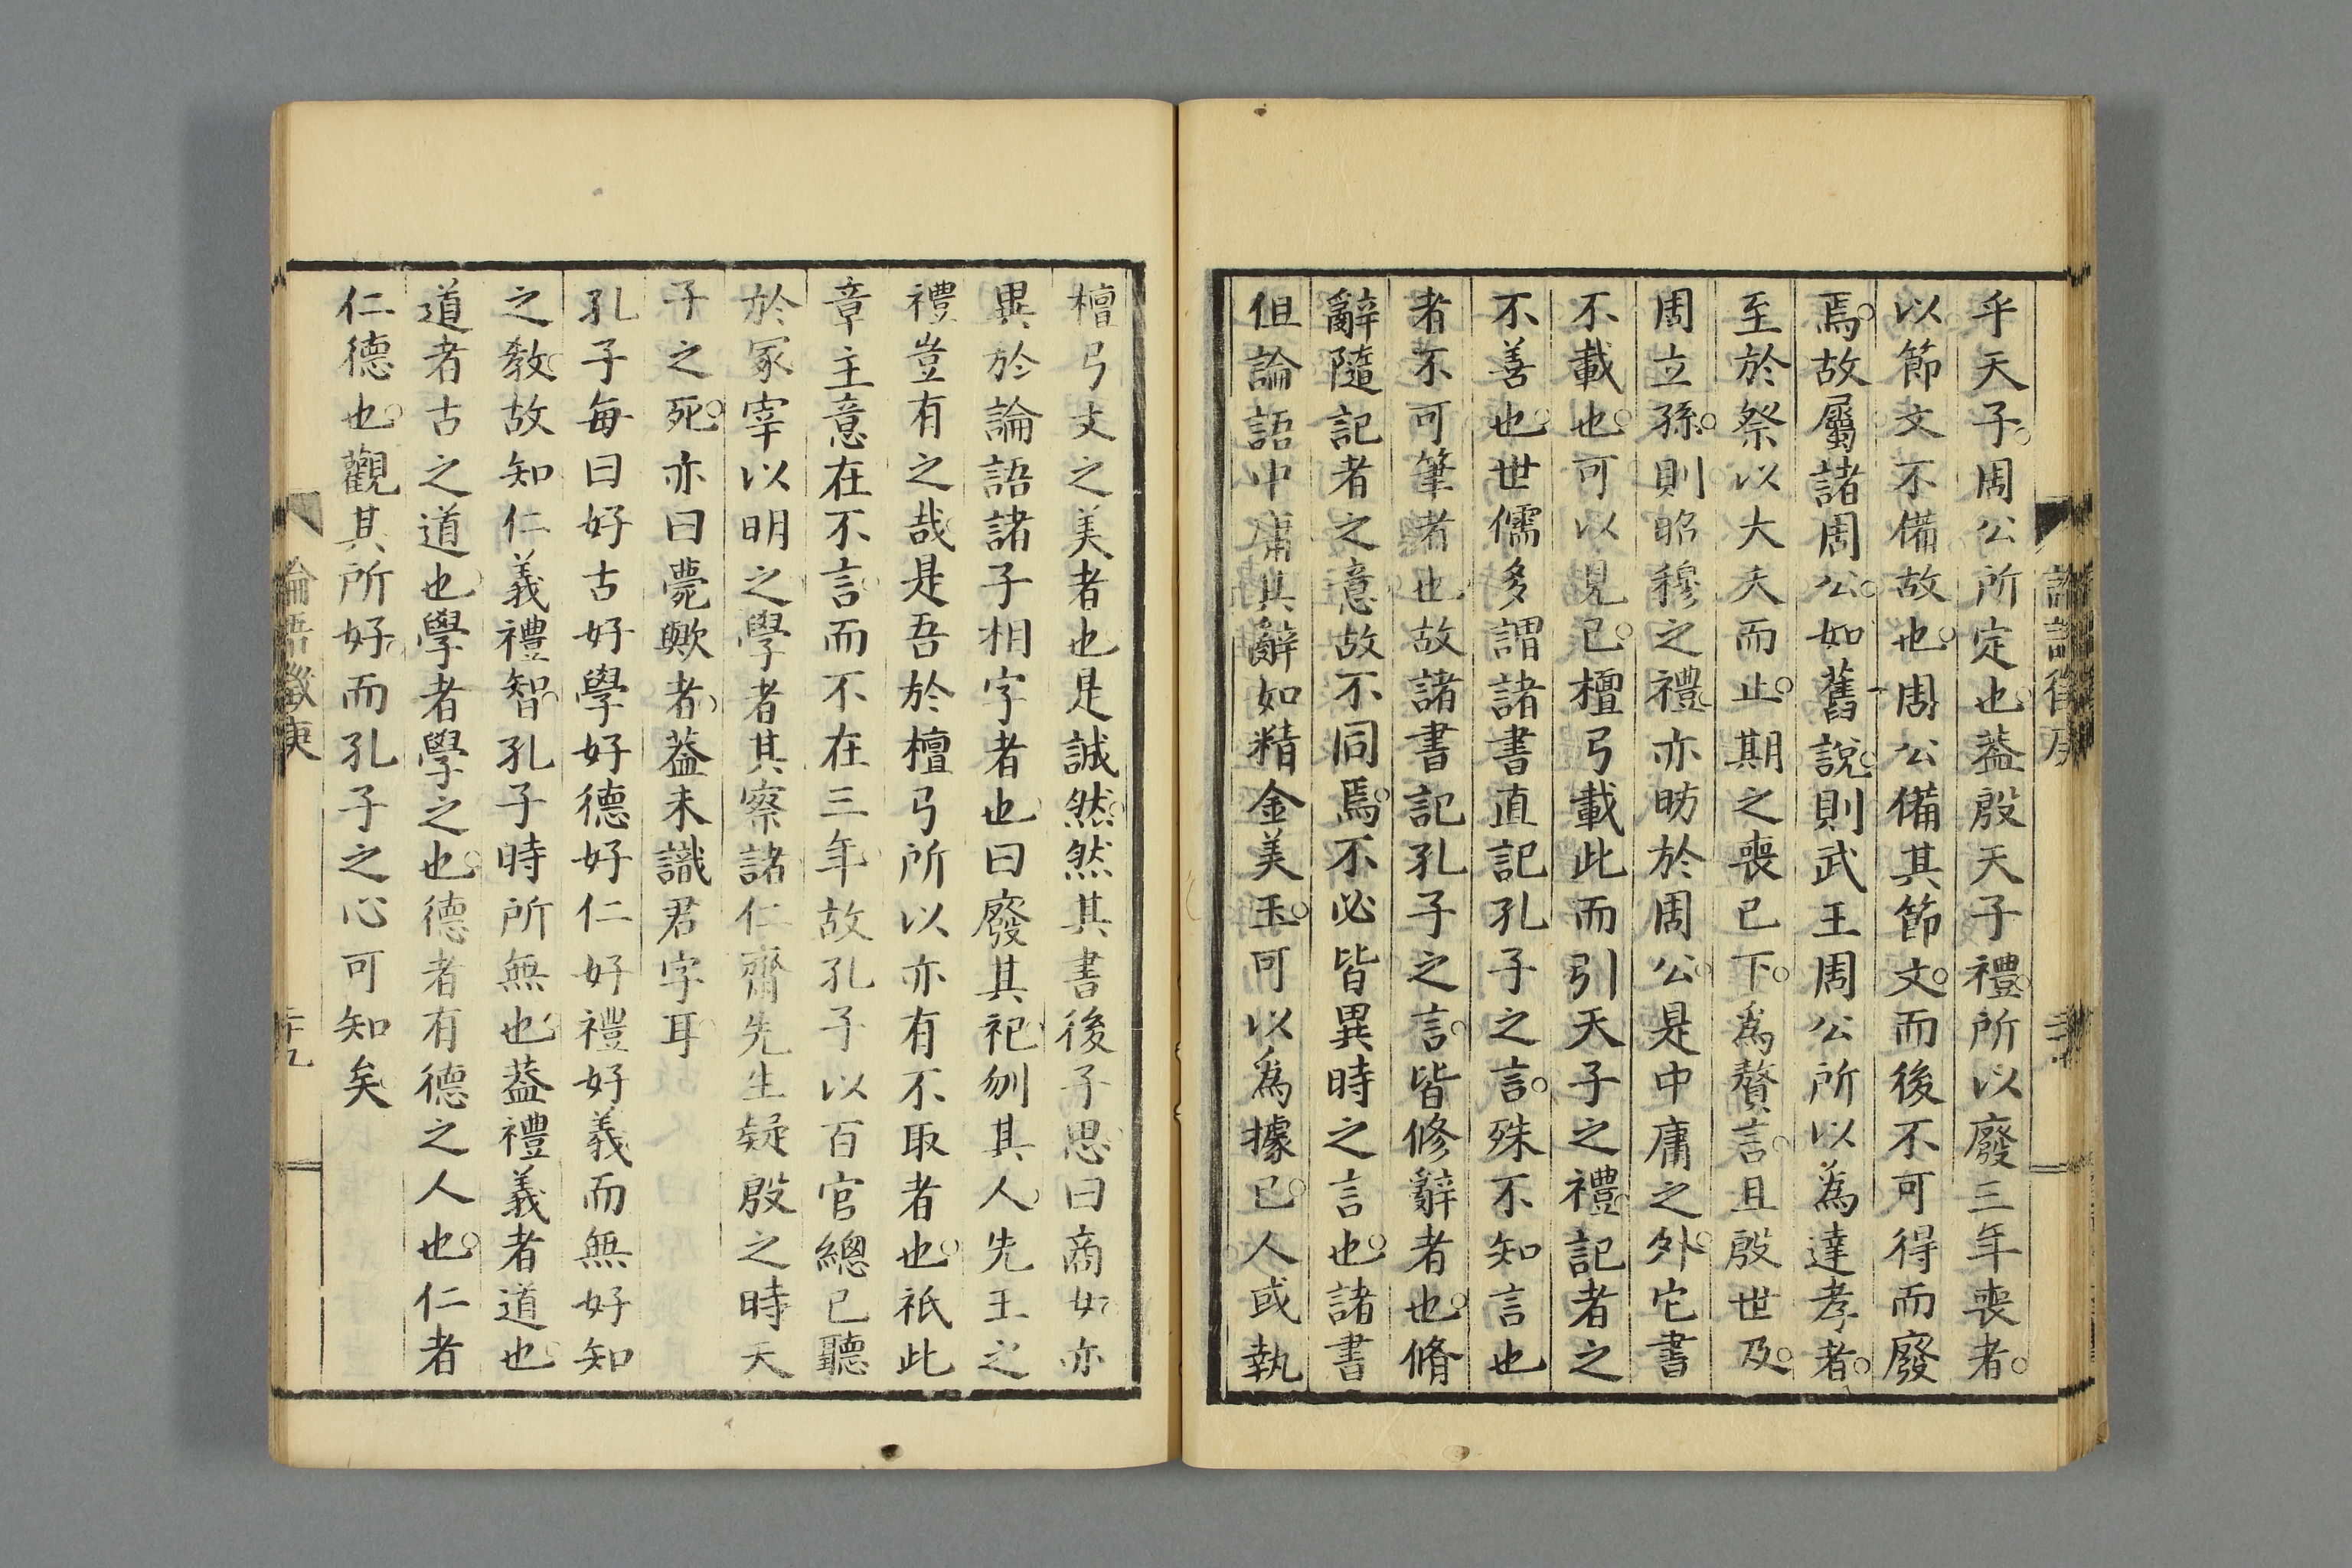 乎天子。周公所定也。蓋殷天子禮。所以廢三年喪者。
以節文不備故也。周公備其節文。而後不可得而廢
焉。故屬諸周公。如舊說。則武王周公所以爲達孝者。
至於祭以大夫而止。期之喪已下。爲贅言。且殷世及。
周立孫。則昭穆之禮。亦昉於周公。是中庸之外。它書
不載也。可以見已。檀弓載此而引天子之禮。記者之
不善也。世儒多謂諸書直記孔子之言。殊不知言也
者不可筆者也。故諸書記孔子之言。皆修辭者也。脩
辭隨記者之意。故不同焉。不必皆異時之言也。諸書
但論語中庸其辭如精金美玉。可以爲據已。人或執
檀弓文之美者也。是誠然。然其書後子思曰商女亦
異於論語諸子相字者也。曰廢其祀。刎其人。先王之
禮豈有之哉。是吾於檀弓所以亦有不取者也。祇此
章主意在不言。而不在三年。故孔子以百官總已聽
於冢宰以明之。學者其察諸。仁齋先生疑殷之時天
子之死。亦曰薨歟者。蓋未識君字耳。
孔子每曰好古好學好德好仁好禮好義而無好知
之教。故知仁義禮智。孔子時所無也。蓋禮義者道也。
道者古之道也。學者學之也。德者有德之人也。仁者
仁德也。觀其所好。而孔子之心可知矣。
論語徵庚
二十九